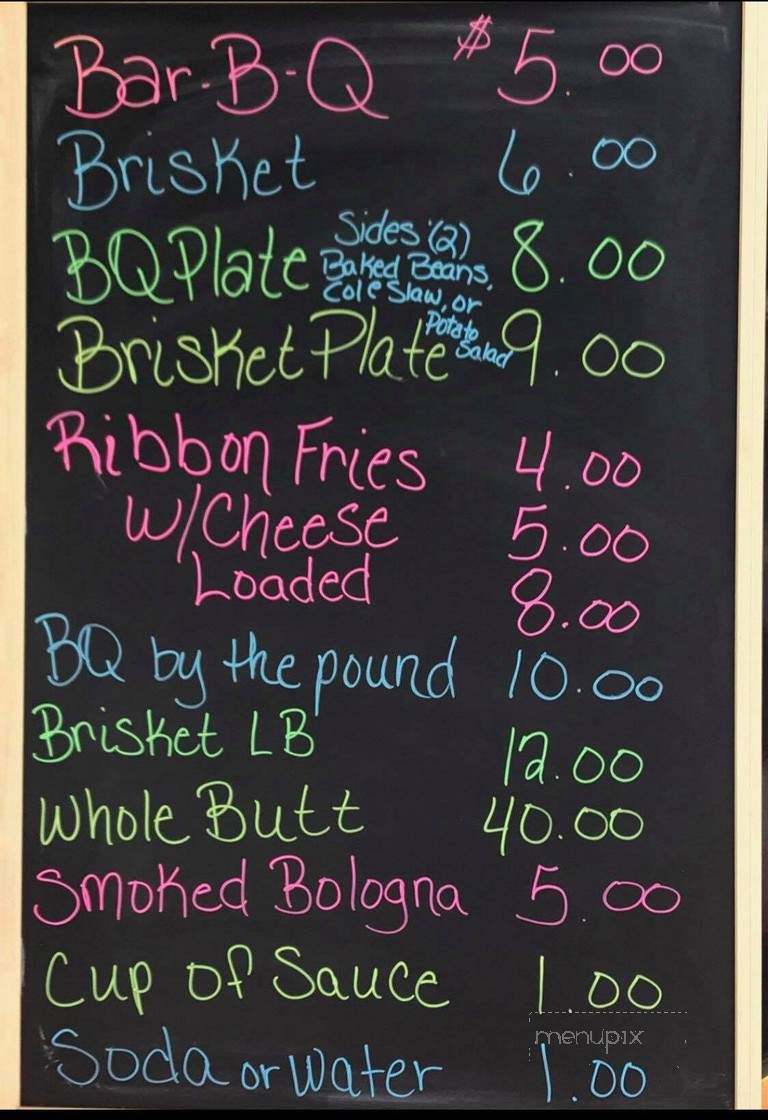 Bar-B-Q $5.00
Brisket 6.00
BQ Plate 8.00
Sides (2)
Baked Beans,
Cole Slaw, or
Potato
Salad
Brisket Plate 9.00
Ribbon Fries 4.00
W/Cheese 5.00
Loaded 8.00
BQ by the pound 10.00
Brisket LB 12.00
Whole Butt 40.00
Smoked Bologna 5.00
Cup of Sauce 1.00
menupix
Soda or Water 1.00